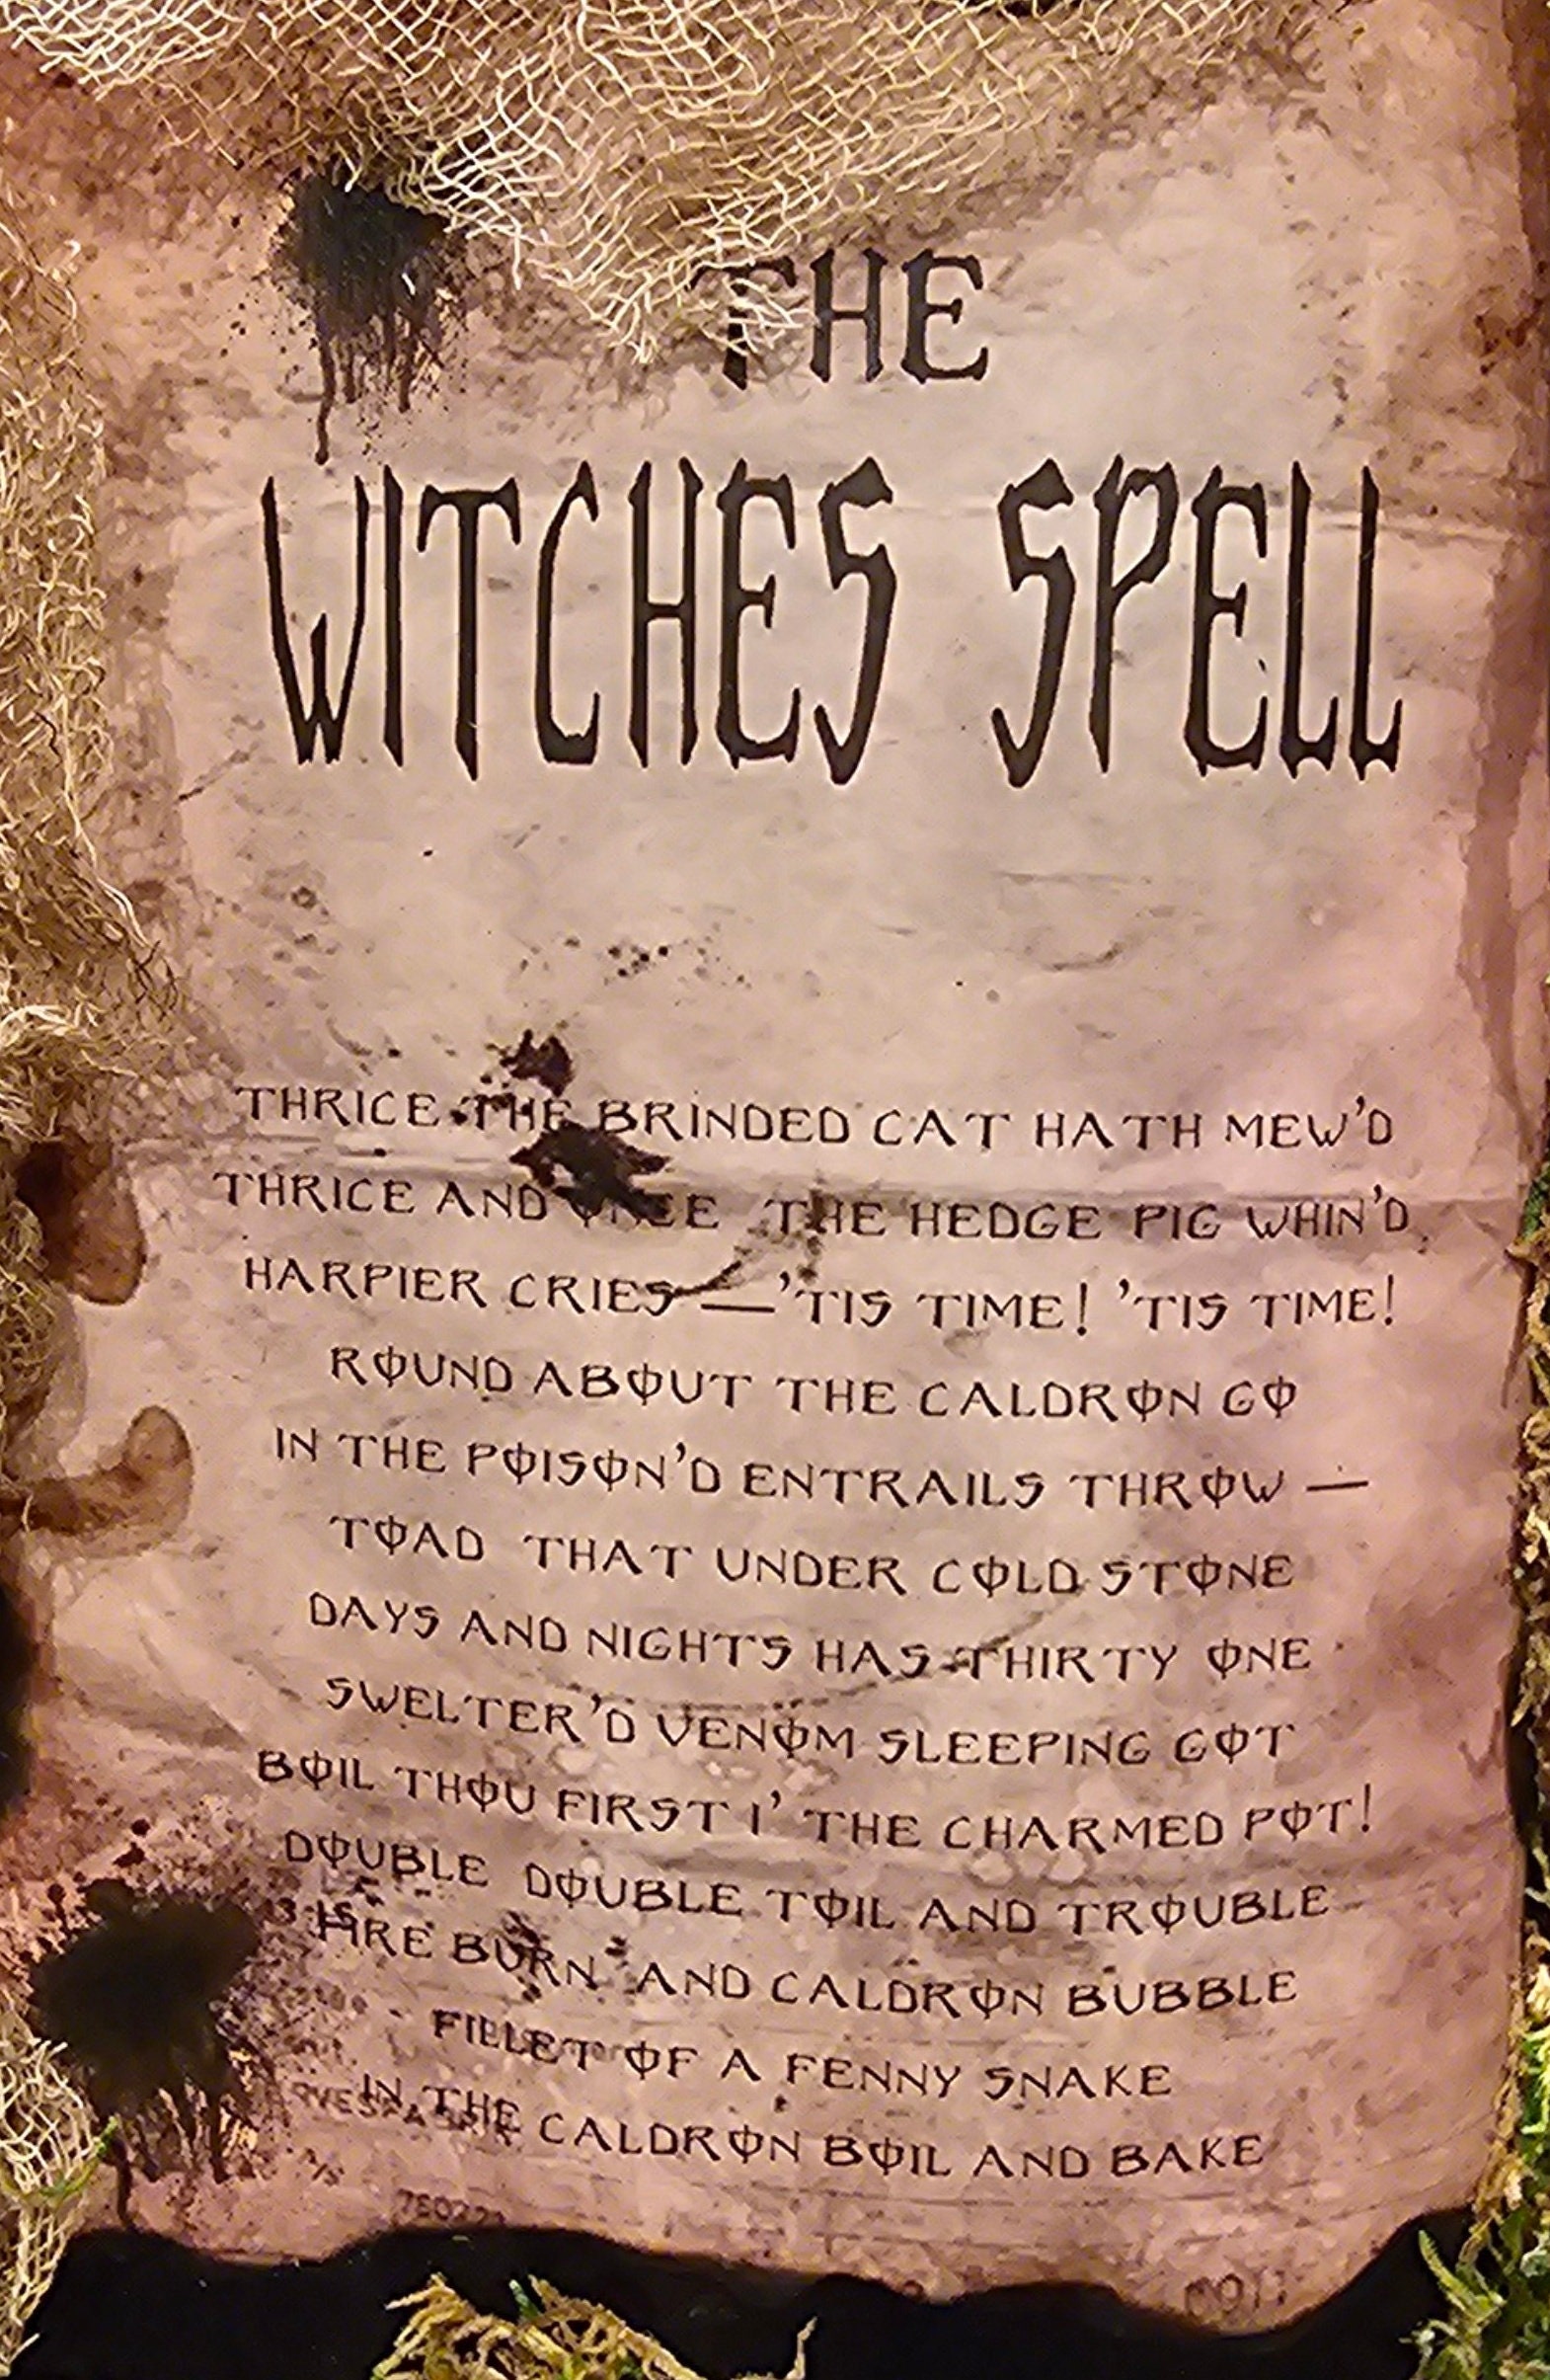 THE
WITCHES SPELL
THRICE THE BRINDED CAT HATH MEW'D
THRICE AND ONCE THE HEDGE PIG WHIN'D,
HARPIER CRIES —'TIS TIME! 'TIS TIME!
ROUND ABOUT THE CALDRON GO
IN THE POISON'D ENTRAILS THROW —
TOAD THAT UNDER COLD STONE
DAYS AND NIGHTS HAS THIRTY ONE
SWELTER'D VENOM SLEEPING GOT
BOIL THOU FIRST I' THE CHARMED POT!
DOUBLE DOUBLE TOIL AND TROUBLE
FIRE BURN AND CALDRON BUBBLE
FILLET OF A FENNY SNAKE
IN THE CALDRON BOIL AND BAKE